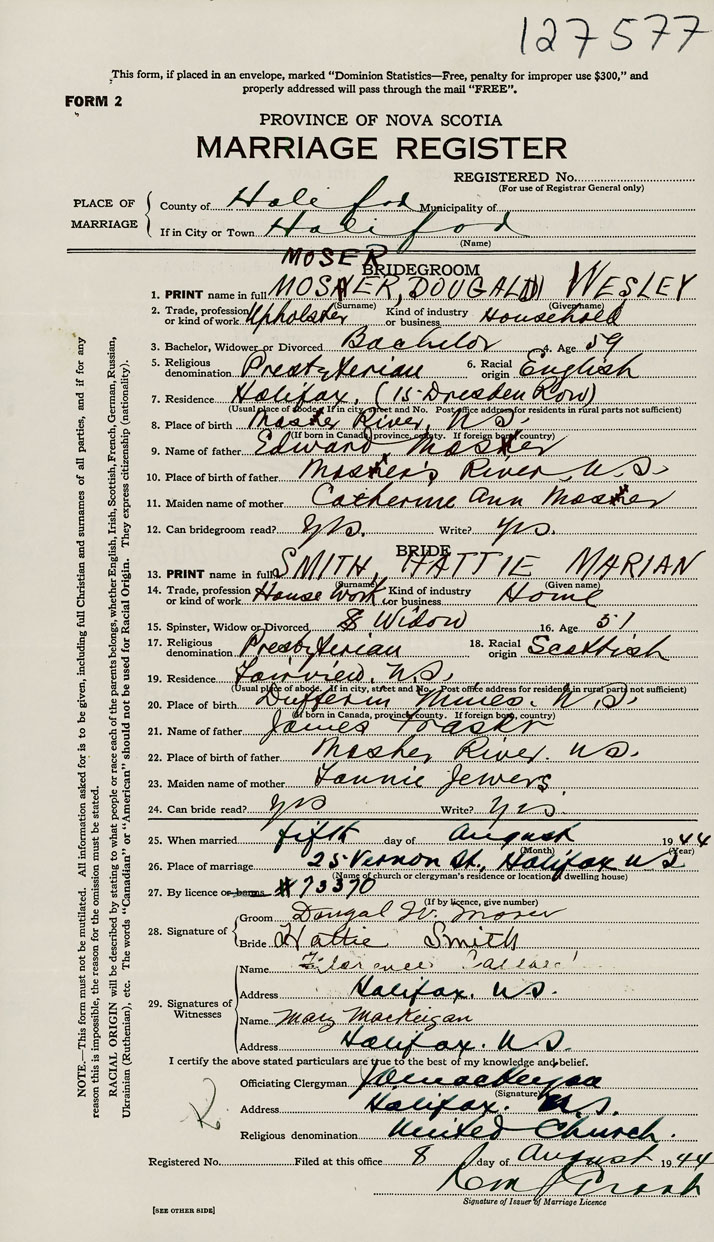 127577
This form, if placed in an envelope, marked "Dominion Statistics—Free, penalty for improper use $300," and
properly addressed will pass through the mail "FREE".
FORM 2
PROVINCE OF NOVA SCOTIA
MARRIAGE REGISTER
REGISTERED No.
(For use of Registrar General only)
PLACE OF MARRIAGE
County of Halifax Municipality of
If in City or Town Halifax
(Name)
MOSER
BRIDEGROOM
1. PRINT name in full MOSHER, DOUGALD WESLEY
(Surname) (Given name)
2. Trade, profession or kind of work Upholster Kind of industry or business Household
3. Bachelor, Widower or Divorced Bachelor 4. Age 59
5. Religious denomination Presbyterian 6. Racial origin English
7. Residence Halifax, (15 Dresden Row)
(Usual place of abode. If in city, street and No. Post office address for residents in rural parts not sufficient)
8. Place of birth Moser River, N.S.
(If born in Canada, province, county. If foreign born, country)
9. Name of father Edward Moser
10. Place of birth of father Moser's River N.S.
11. Maiden name of mother Catherine Ann Moser
12. Can bridegroom read? Yes. Write? Yes.
BRIDE
13. PRINT name in full SMITH, HATTIE MARIAN
(Surname) (Given name)
14. Trade, profession or kind of work House Work Kind of industry or business Home
15. Spinster, Widow or Divorced Widow 16. Age 51
17. Religious denomination Presbyterian 18. Racial origin Scottish
19. Residence Fairview. N.S.
(Usual place of abode. If in city, street and No. Post office address for residents in rural parts not sufficient)
20. Place of birth Dufferin Mines. N.S.
(If born in Canada, province, county. If foreign born, country)
21. Name of father James
22. Place of birth of father Mosher River. N.S.
23. Maiden name of mother Fannie Jewers
24. Can bride read? Yes Write? Yes
25. When married fifth day of August 1944
(Month) (Year)
26. Place of marriage 25 Vernon St., Halifax N.S.
(Name of church or clergyman's residence or location of dwelling house)
27. By licence or banns #73370
(If by licence, give number)
28. Signature of
Groom Dougal W. Moser
Bride Hattie Smith
29. Signatures of Witnesses
Name Florence
Address Halifax. N.S.
Name Mary MacKeigan
Address Halifax. N.S.
I certify the above stated particulars are true to the best of my knowledge and belief.
Officiating Clergyman
(Signature)
Address Halifax. N.S.
Religious denomination United Church.
Registered No. Filed at this office 8 day of August 1944
Signature of Issuer of Marriage Licence
[SEE OTHER SIDE]
NOTE.—This form must not be mutilated. All information asked for is to be given, including full Christian and surnames of all parties, and if for any
reason this is impossible, the reason for the omission must be stated.
RACIAL ORIGIN will be described by stating to what people or race each of the parents belongs, whether English, Irish, Scottish, French, German, Russian,
Ukrainian (Ruthenian), etc. The words "Canadian" or "American" should not be used for Racial Origin. They express citizenship (nationality).